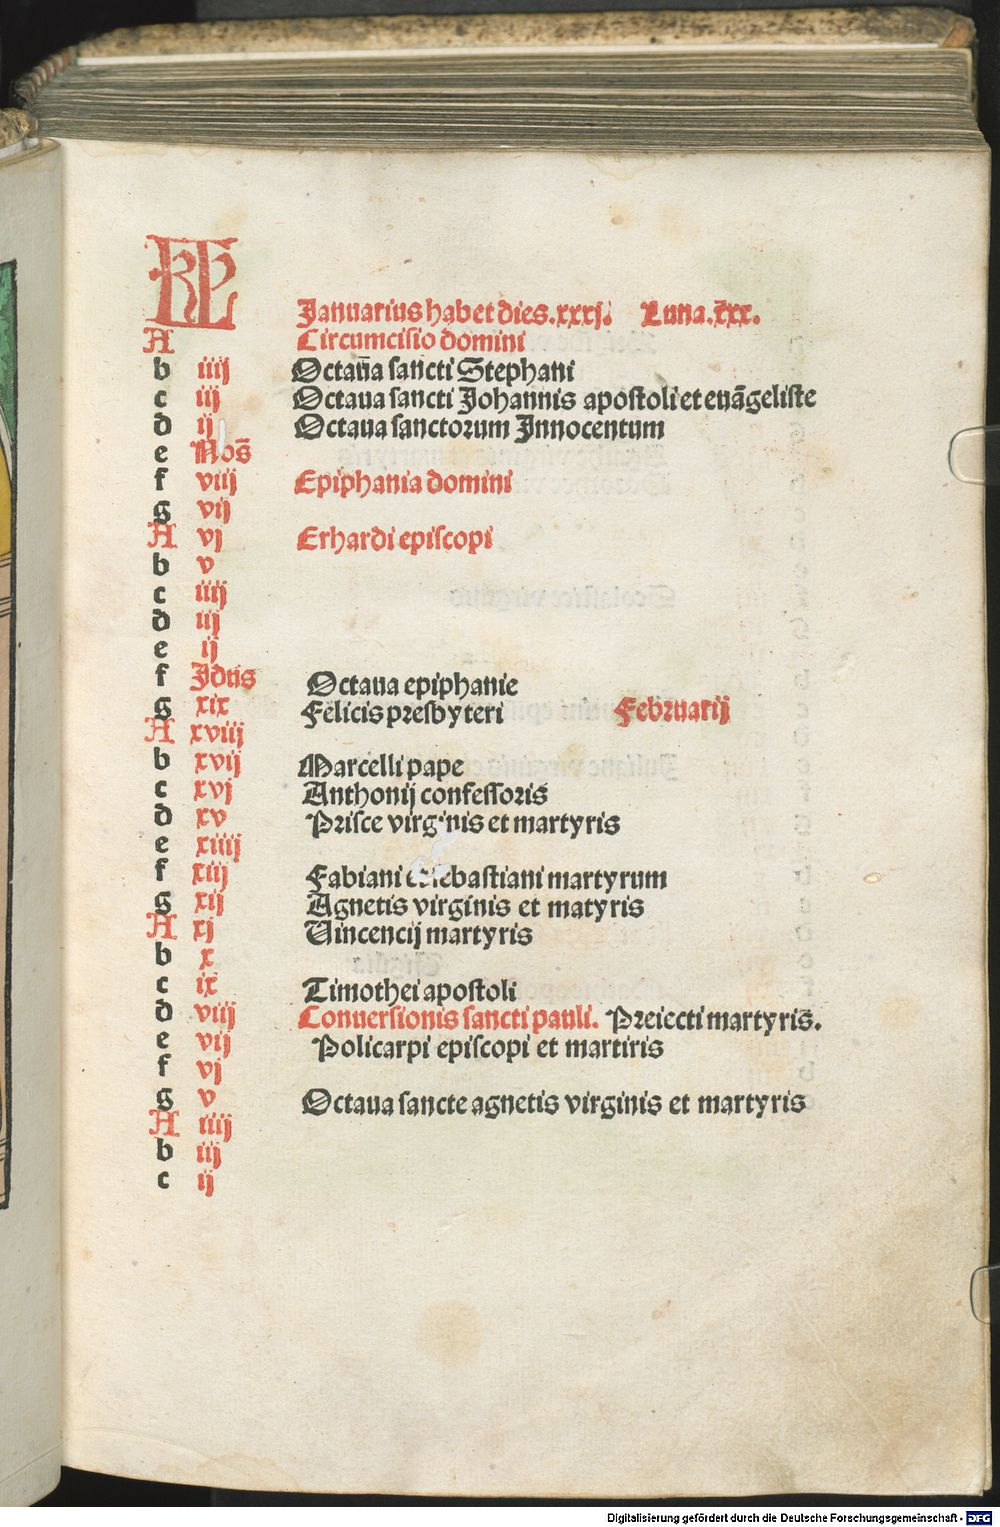 KL
Januarius habet dies.xxxj. Luna.xxx.
A Circumcisio domini
b iiij Octaūa sancti Stephani
c iij Octaua sancti Johannis apostoli et euāgeliste
d ij Octaua sanctorum Innocentum
e Nos̄
f viij Epiphania domini
g vij
A vj Erhardi episcopi
b v
c iiij
d iij
e ij
f Jdus
g xix Octaua epiphanie
Felicis presbyteri Februarij
A xviij
b xvij Marcelli pape
c xvj Anthonij confessoris
d xv Prisce virginis et martyris
e xiiij
f xiij Fabiani et sebastiani martyrum
g xij Agnetis virginis et matyris
A xj Vincencij martyris
b x
c ix Timothei apostoli
d viij Conuersionis sancti pauli. Preiecti martyris.
e vij Policarpi episcopi et martiris
f vj
g v Octaua sancte agnetis virginis et martyris
A iiij
b iij
c ij
Digitalisierung gefördert durch die Deutsche Forschungsgemeinschaft - DFG